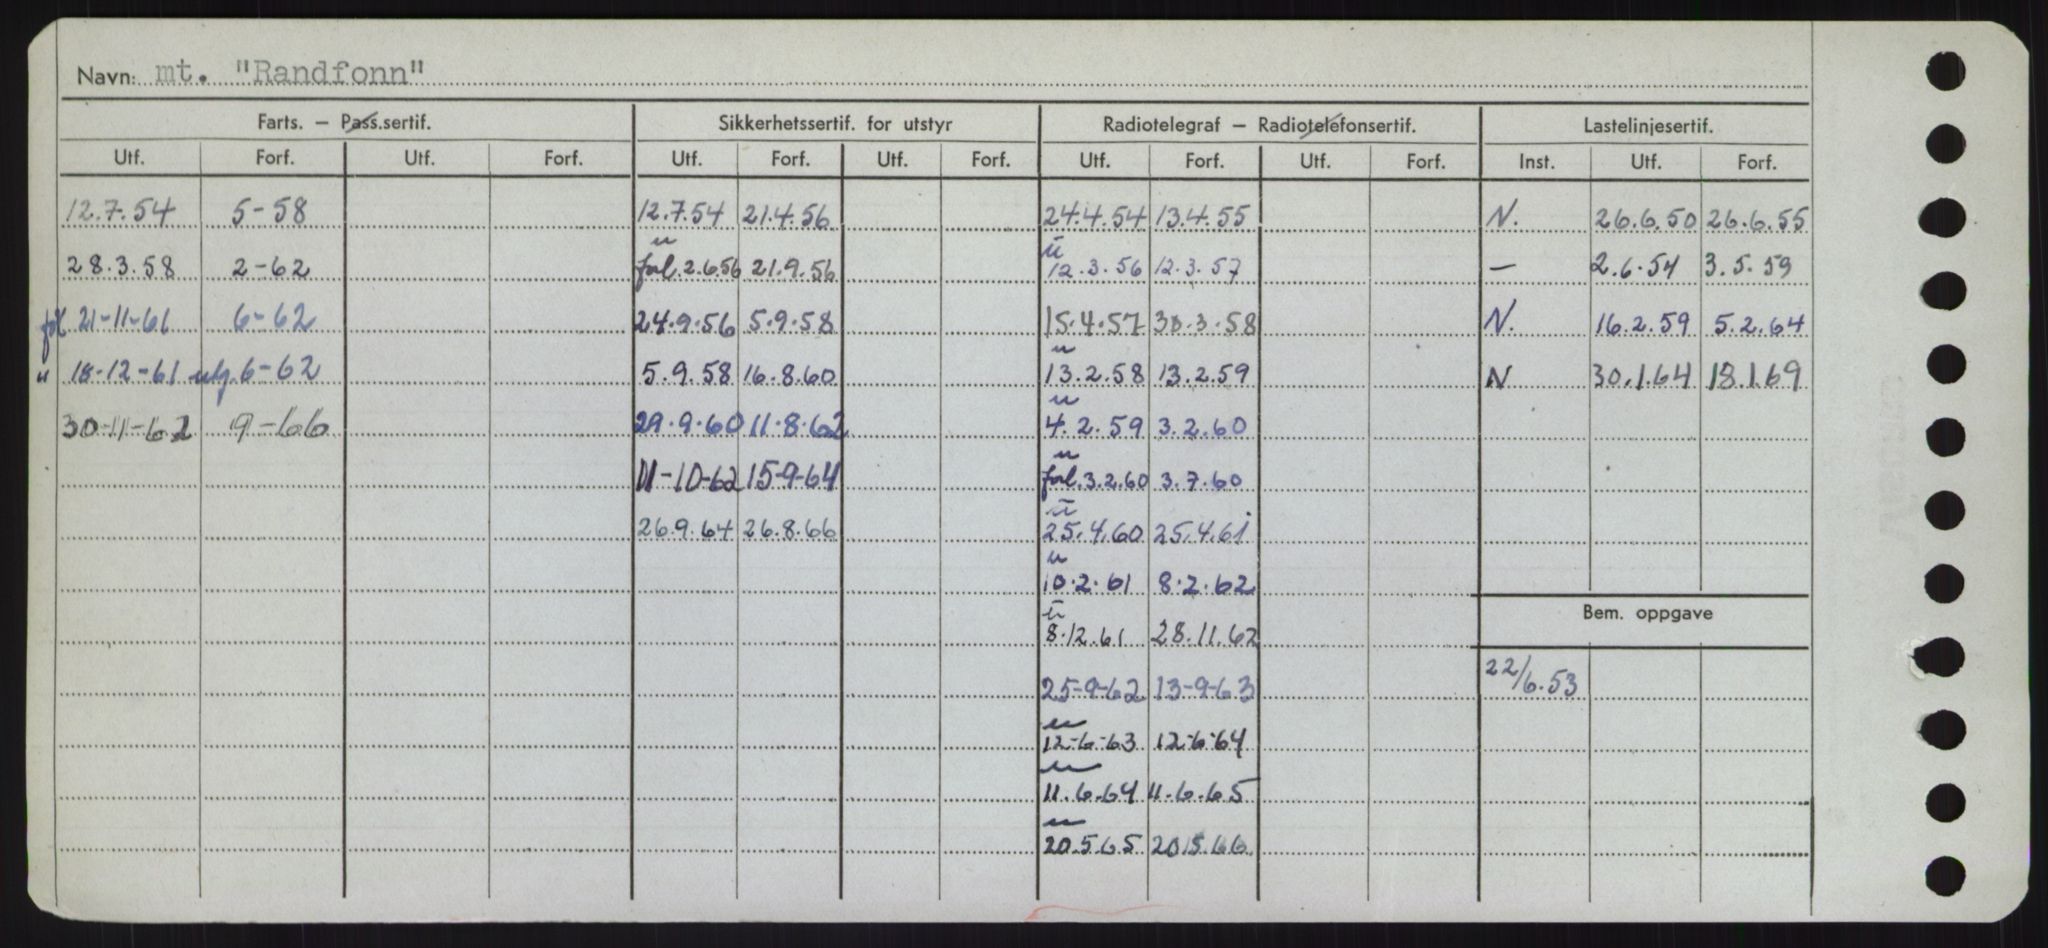 Navn: mt. "Randfonn"
Farts. — Pass.sertif. Sikkerhetssertif. for utstyr Radiotelegraf — Radiotelefonsertif. Lastelinjesertif.
Utf. Forf. Utf. Forf. Utf. Forf. Utf. Forf. Utf. Forf. Utf. Forf. Inst. Utf. Forf.
12.7.54 5-58 12.7.54 21.4.56 24.4.54 13.4.55 N. 26.6.50 26.6.55
u ū
28.3.58 2-62 forl. 2.6.56 21.9.56 12.3.56 12.3.57 — 2.6.54 3.5.59
forl 21-11-61 6-62 24.9.56 5.9.58 15.4.57 30.3.58 N. 16.2.59 5.2.64
u
" 18-12-61 utg. 6-62 5.9.58 16.8.60 13.2.58 13.2.59 N 30.1.64 18.1.69
u
30-11-62 9-66 29.9.60 11.8.62 4.2.59 3.2.60
u
11-10-62 15-9-64 forl. 3.2.60 3.7.60
ū
26.9.64 26.8.66 25.4.60 25.4.61
u
10.2.61 8.2.62
ū
Bem. oppgave
8.12.61 28.11.62
22/6.53
25-9-62 13-9-63
u
12-6-63 12-6-64
u
11.6.64 11.6.65
u
20.5.65 20.5.66